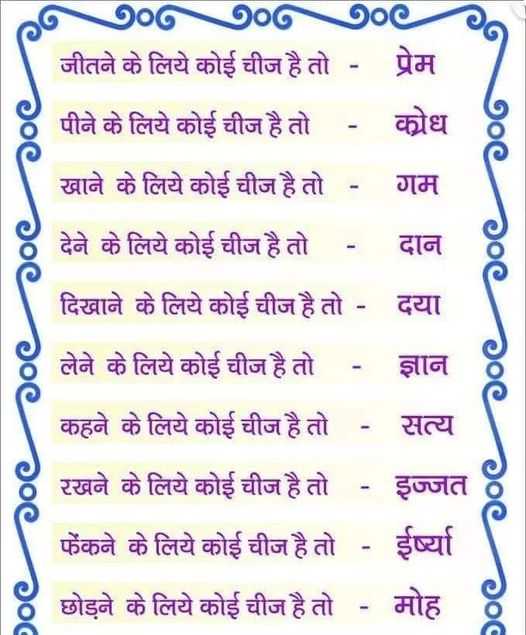 जीतने के लिये कोई चीज है तो - प्रेम
पीने के लिये कोई चीज है तो - क्रोध
खाने के लिये कोई चीज है तो - गम
देने के लिये कोई चीज है तो - दान
दिखाने के लिये कोई चीज है तो - दया
लेने के लिये कोई चीज है तो - ज्ञान
कहने के लिये कोई चीज है तो - सत्य
रखने के लिये कोई चीज है तो - इज्जत
फेंकने के लिये कोई चीज है तो - ईर्ष्या
छोड़ने के लिये कोई चीज है तो - मोह